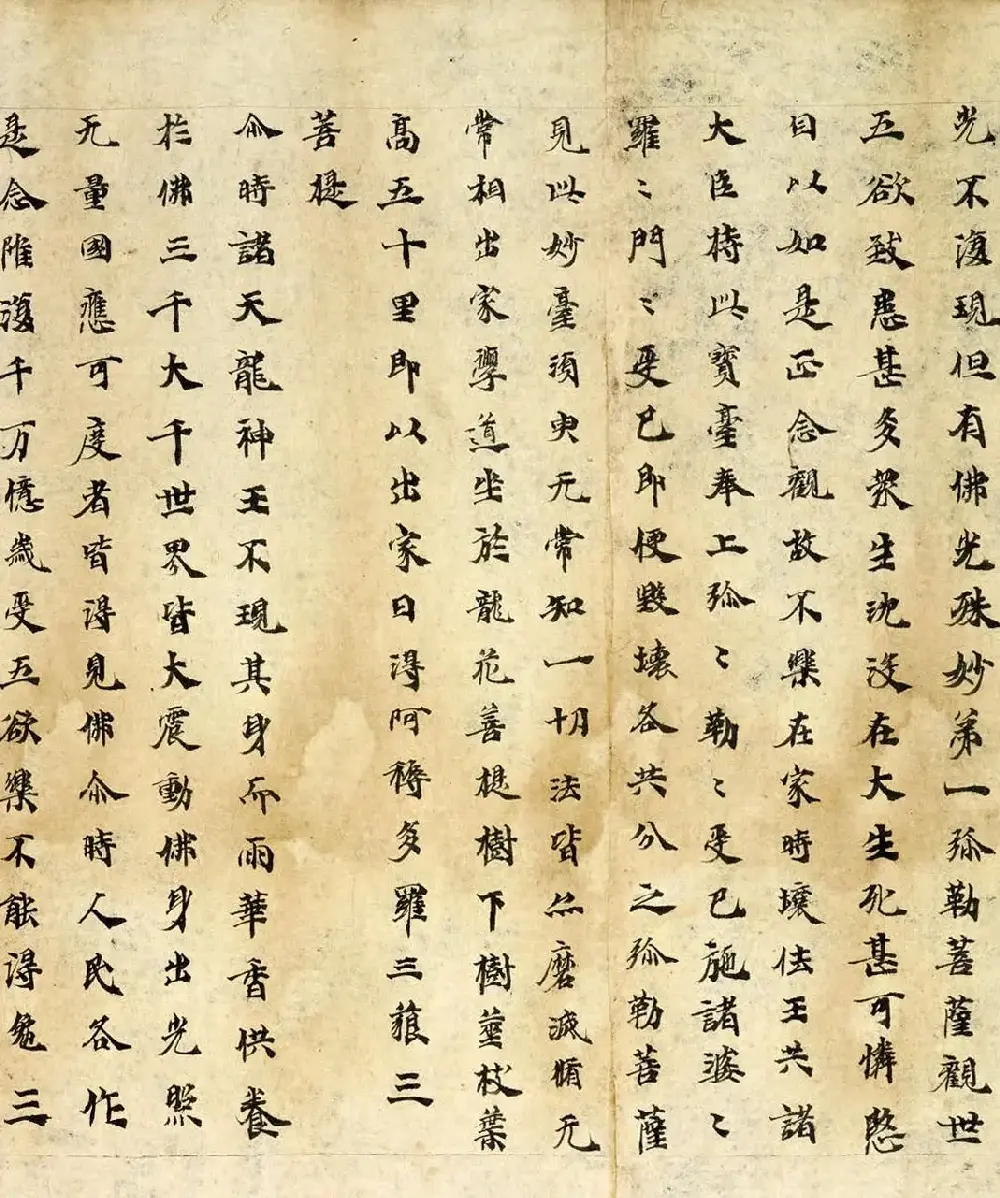 光不復現但有佛光殊妙第一弥勒菩薩觀世
五欲致患甚多衆生沈没在大生死甚可憐愍
日以如是正念觀故不樂在家時壤佉王共諸
大臣持此寶臺奉上弥〻勒〻受已施諸婆〻
羅〻門〻受已即便毀壞各共分之弥勒菩薩
見此妙臺須臾无常知一切法皆亦磨滅脩无
常相出家學道坐於龍花菩提樹下樹莖枝葉
高五十里即以出家日得阿耨多羅三藐三
菩提
尒時諸天龍神王不現其身而雨華香供養
於佛三千大千世界皆大震動佛身出光照
无量國應可度者皆得見佛尒時人民各作
是念雖復千万億歲受五欲樂不能得免三